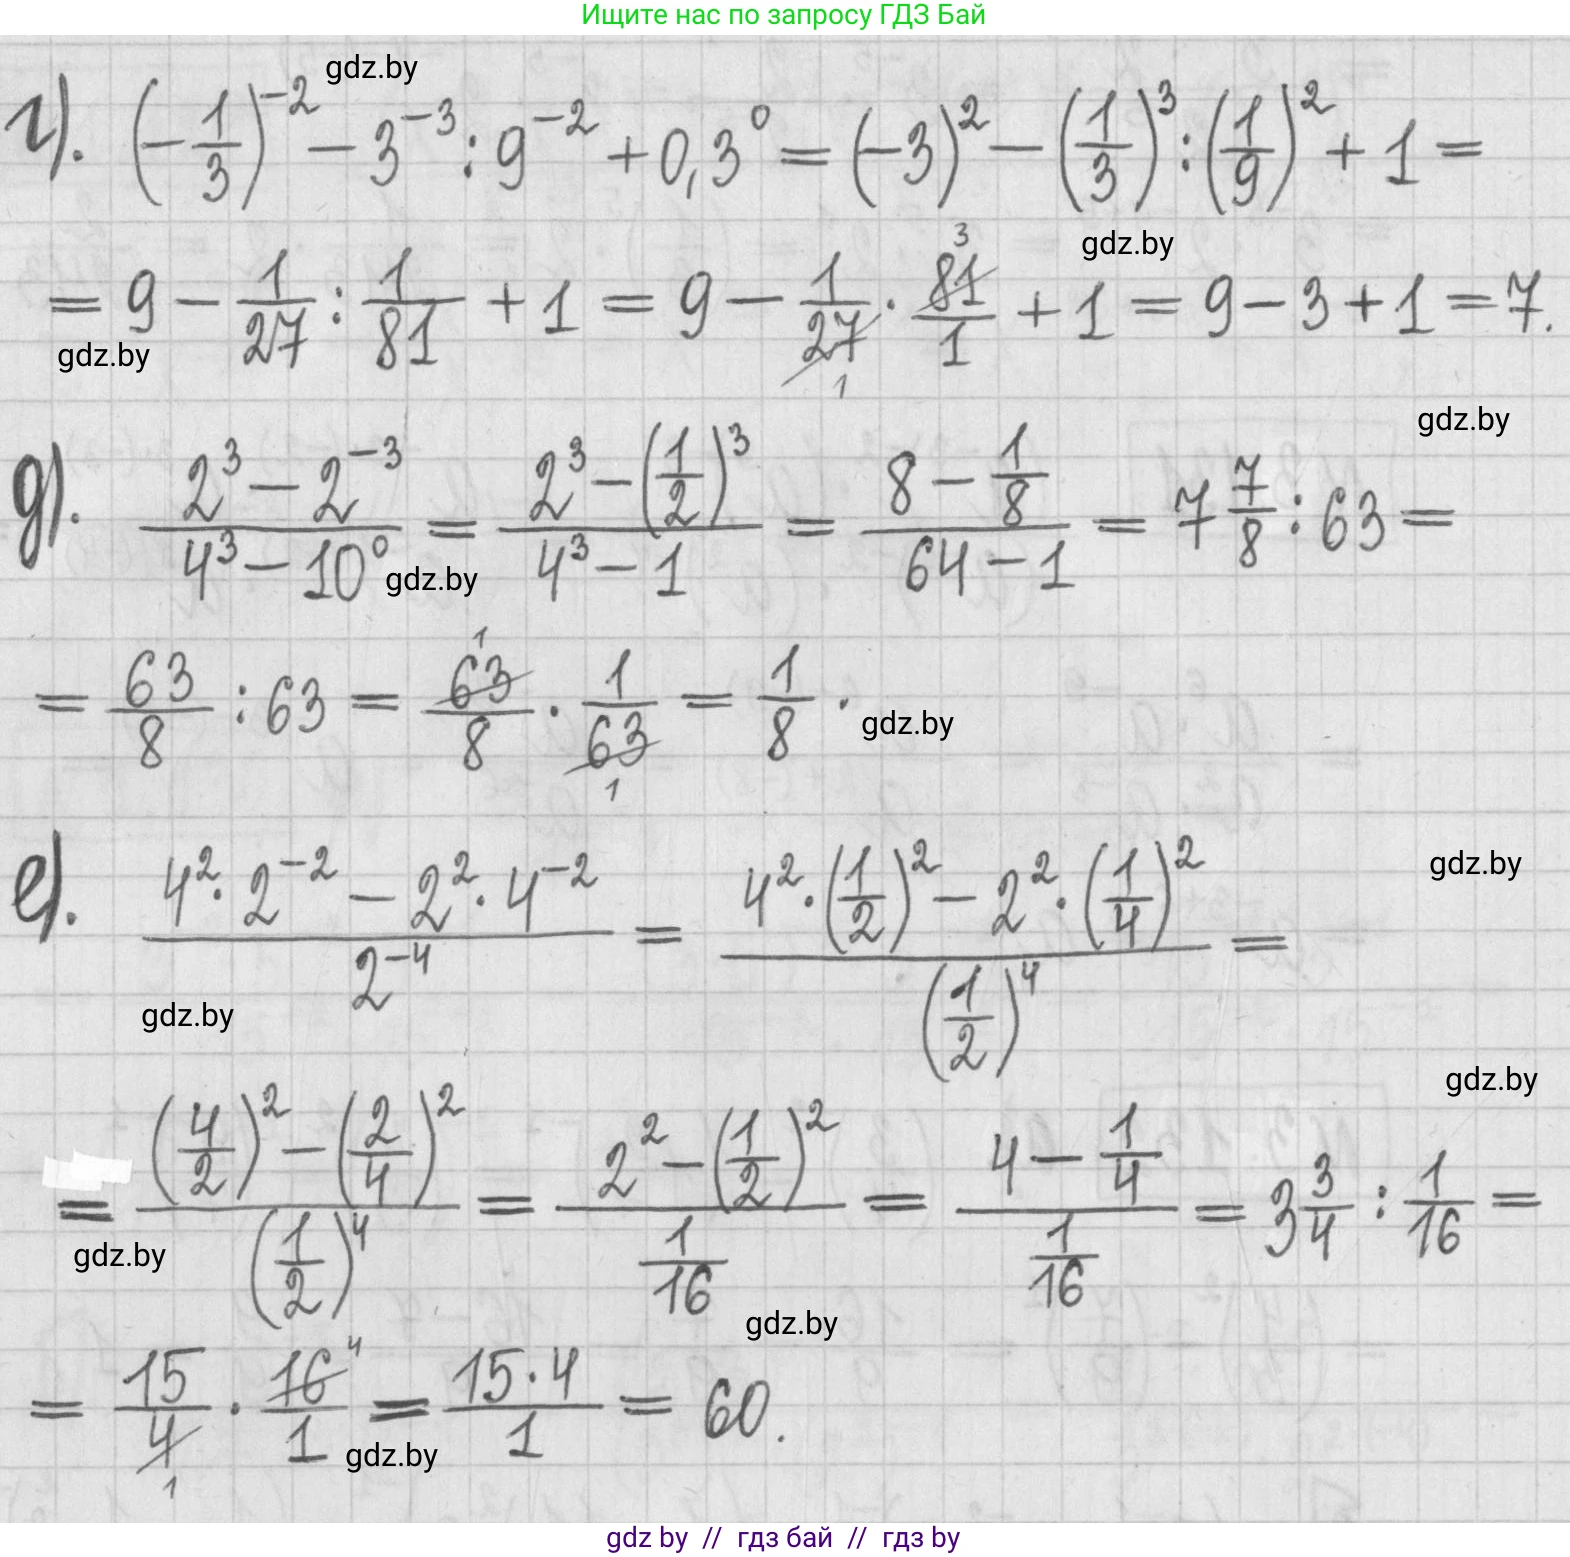 Ищите нас по запросу ГДЗ Бай
gdz.by
г). (-1/3)^-2 - 3^-3 : 9^-2 + 0,3^0 = (-3)^2 - (1/3)^3 : (1/9)^2 + 1 =
gdz.by
= 9 - 1/27 : 1/81 + 1 = 9 - 1/27 · 81/1 + 1 = 9 - 3 + 1 = 7.
3
1
gdz.by
gdz.by
д). (2^3 - 2^-3)/(4^3 - 10^0) = (2^3 - (1/2)^3)/(4^3 - 1) = (8 - 1/8)/(64 - 1) = 7 7/8 : 63 =
gdz.by
= 63/8 : 63 = 63/8 · 1/63 = 1/8.
1
1
gdz.by
е). (4^2 · 2^-2 - 2^2 · 4^-2)/2^-4 = (4^2 · (1/2)^2 - 2^2 · (1/4)^2)/(1/2)^4 =
gdz.by
gdz.by
gdz.by
= ((4/2)^2 - (2/4)^2)/(1/2)^4 = (2^2 - (1/2)^2)/(1/16) = (4 - 1/4)/(1/16) = 3 3/4 : 1/16 =
gdz.by
gdz.by
= 15/4 · 16/1 = (15 · 4)/1 = 60.
4
1
gdz.by
gdz by // гдз бай // гдз by